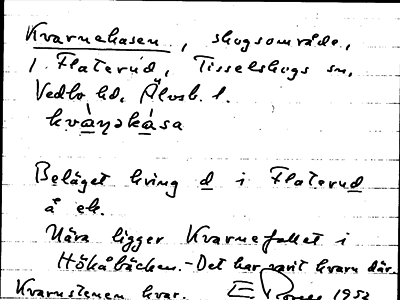 Kvarnehasen, skogsområde,
i Flaterud, Tisselskogs sn,
Vedbo hd, Älvsb. l.
kvàɳəkása
Beläget kring d i Flaterud
å ek.
Nära ligger Kvarnefallet i
Hökåbäcken. - Det har varit kvarn där.
Kvarnstenen kvar. 1952